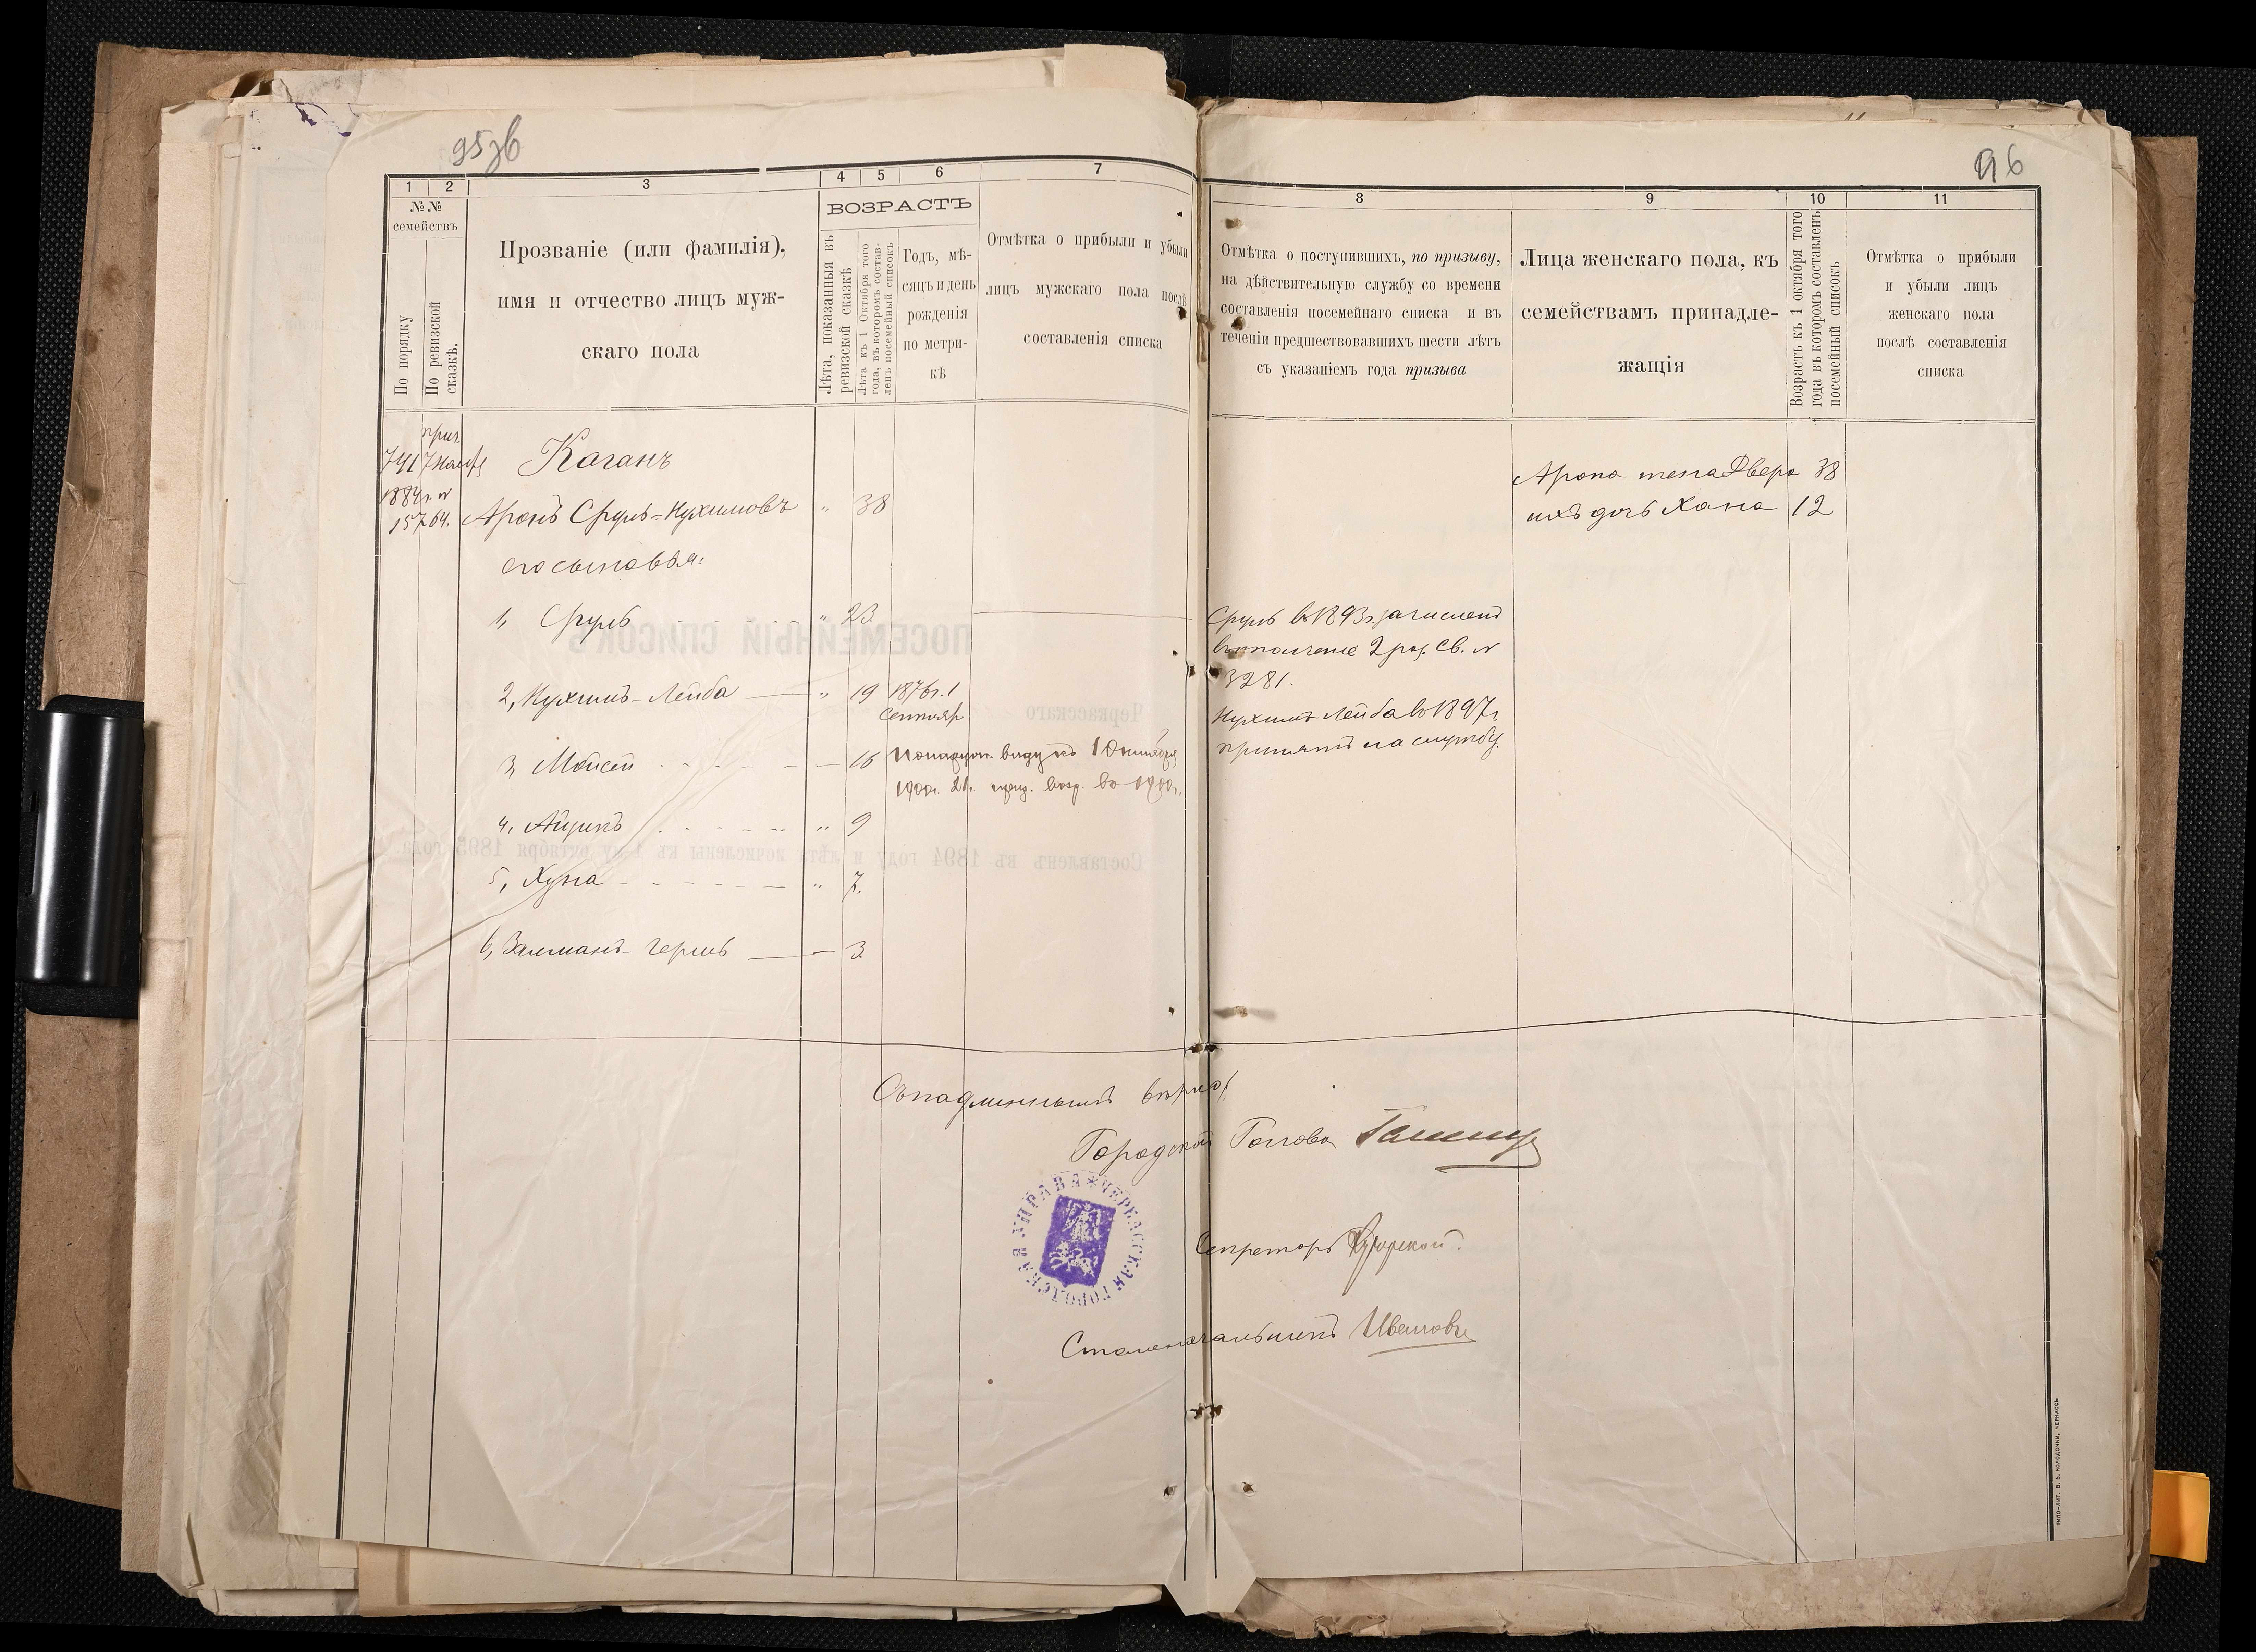 95зв
96
1 2 3 4 5 6 7
№№ семействъ
По порядку
По ревизской сказкѣ.
Прозваніе (или фамилія),
имя и отчество лицъ муж-
скаго пола
ВОЗРАСТЪ
Лѣта, показанныя въ
ревизской сказкѣ
Лѣта къ 1 Октября того
года, въ которомъ состав-
ленъ посемейный списокъ
Годъ, мѣ-
сяцъ и день
рожденія
по метри-
кѣ
Отмѣтка о прибыли и убыли
лицъ мужскаго пола послѣ
составленія списка
8 9 10 11
Отмѣтка о поступившихъ, по призыву,
на дѣйствительную службу со времени
составленія посемейнаго списка и въ
теченіи предшествовавшихъ шести лѣтъ
съ указаніемъ года призыва
Лица женскаго пола, къ
семействамъ принадле-
жащія
Возрастъ къ 1 октября того
года въ которомъ составленъ
посемейный списокъ
Отмѣтка о прибыли
и убыли лицъ
женскаго пола
послѣ составленія
списка
741 Каганъ
1884 г. №
15764. Аронъ Сруль-Нухимовъ " 38
его сыновья:
1, Сруль " 23
2, Нухимъ-Лейба " 19 1876 г. 1
Сентяб
3, Мойсей 16 виду къ 1 Октября
1900 г. 21 г. возр. во 1900 г.
4, Айцикъ " 9
5, Хуна " 7.
6, Залманъ-Гершъ 3
Сруль въ 1893 г. зачисленъ
въ ополченіе 2 раз. Св. №
3281.
Нухимъ Лейба во 1897 г.
принятъ на службу.
Арона жена Двера 38
ихъ дочь Хана 12
Съ подлиннымъ вѣрно:
Городской Голова
Секретарь
Столоначальникъ Ивановъ
ЧЕРКАССКАЯ ГОРОДСКАЯ УПРАВА
ПОСЕМЕЙНЫЙ СПИСОКЪ
Черкасскаго
Составленъ въ 1894 году и лѣта исчислены къ 1-му октября 1895 года.
ТИПО-ЛИТ. В. В. КОЛОДОЧКИ, ЧЕРКАССЫ